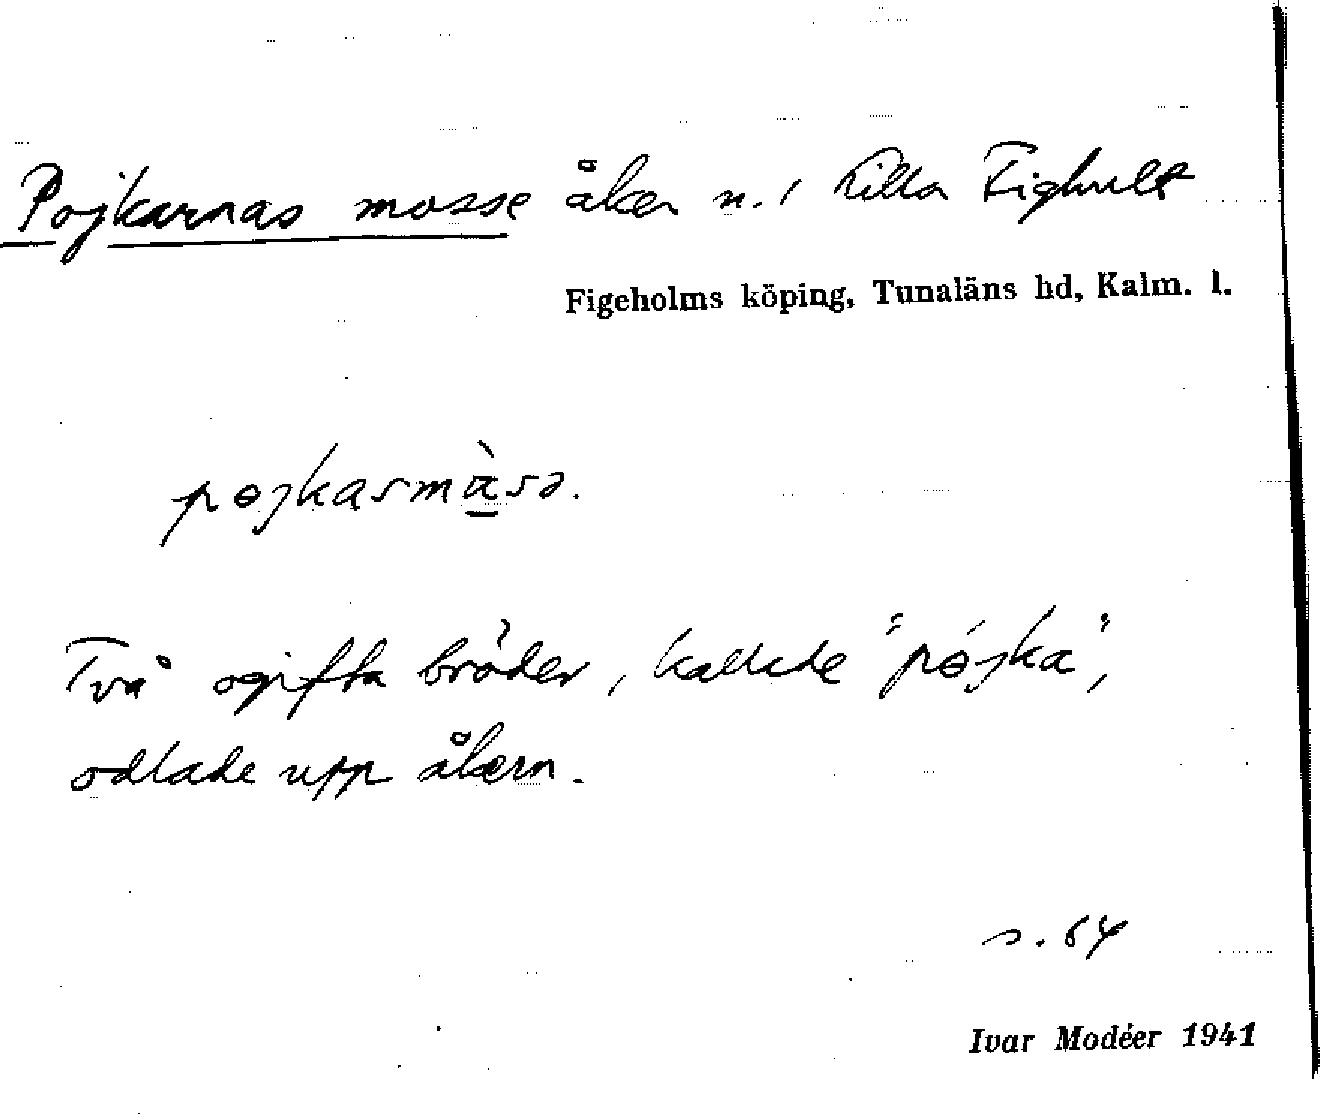 Pojkarnas mosse åker n. i Lilla Fighult
Figeholms köping, Tunaläns hd, Kalm. l.
pojkasmàsə.
Två ogifta bröder, kallade "pojka",
odlade upp åkern.
s. 64
Ivar Modéer 1941